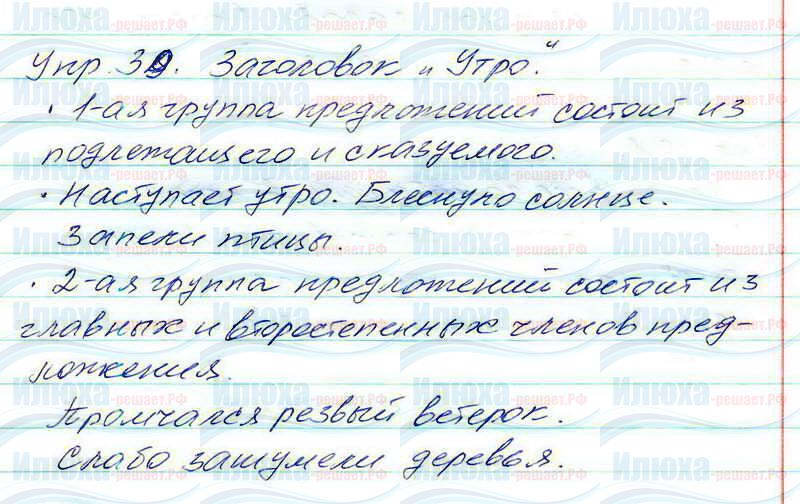 Упр. 39. Заголовок „Утро".
· 1-ая группа предложений состоит из
подлежащего и сказуемого.
· Наступает утро. Блеснуло солнце.
Запели птицы.
· 2-ая группа предложений состоит из
главных и второстепенных членов пред-
ложения.
Промчался резвый ветерок.
Слабо зашумели деревья.